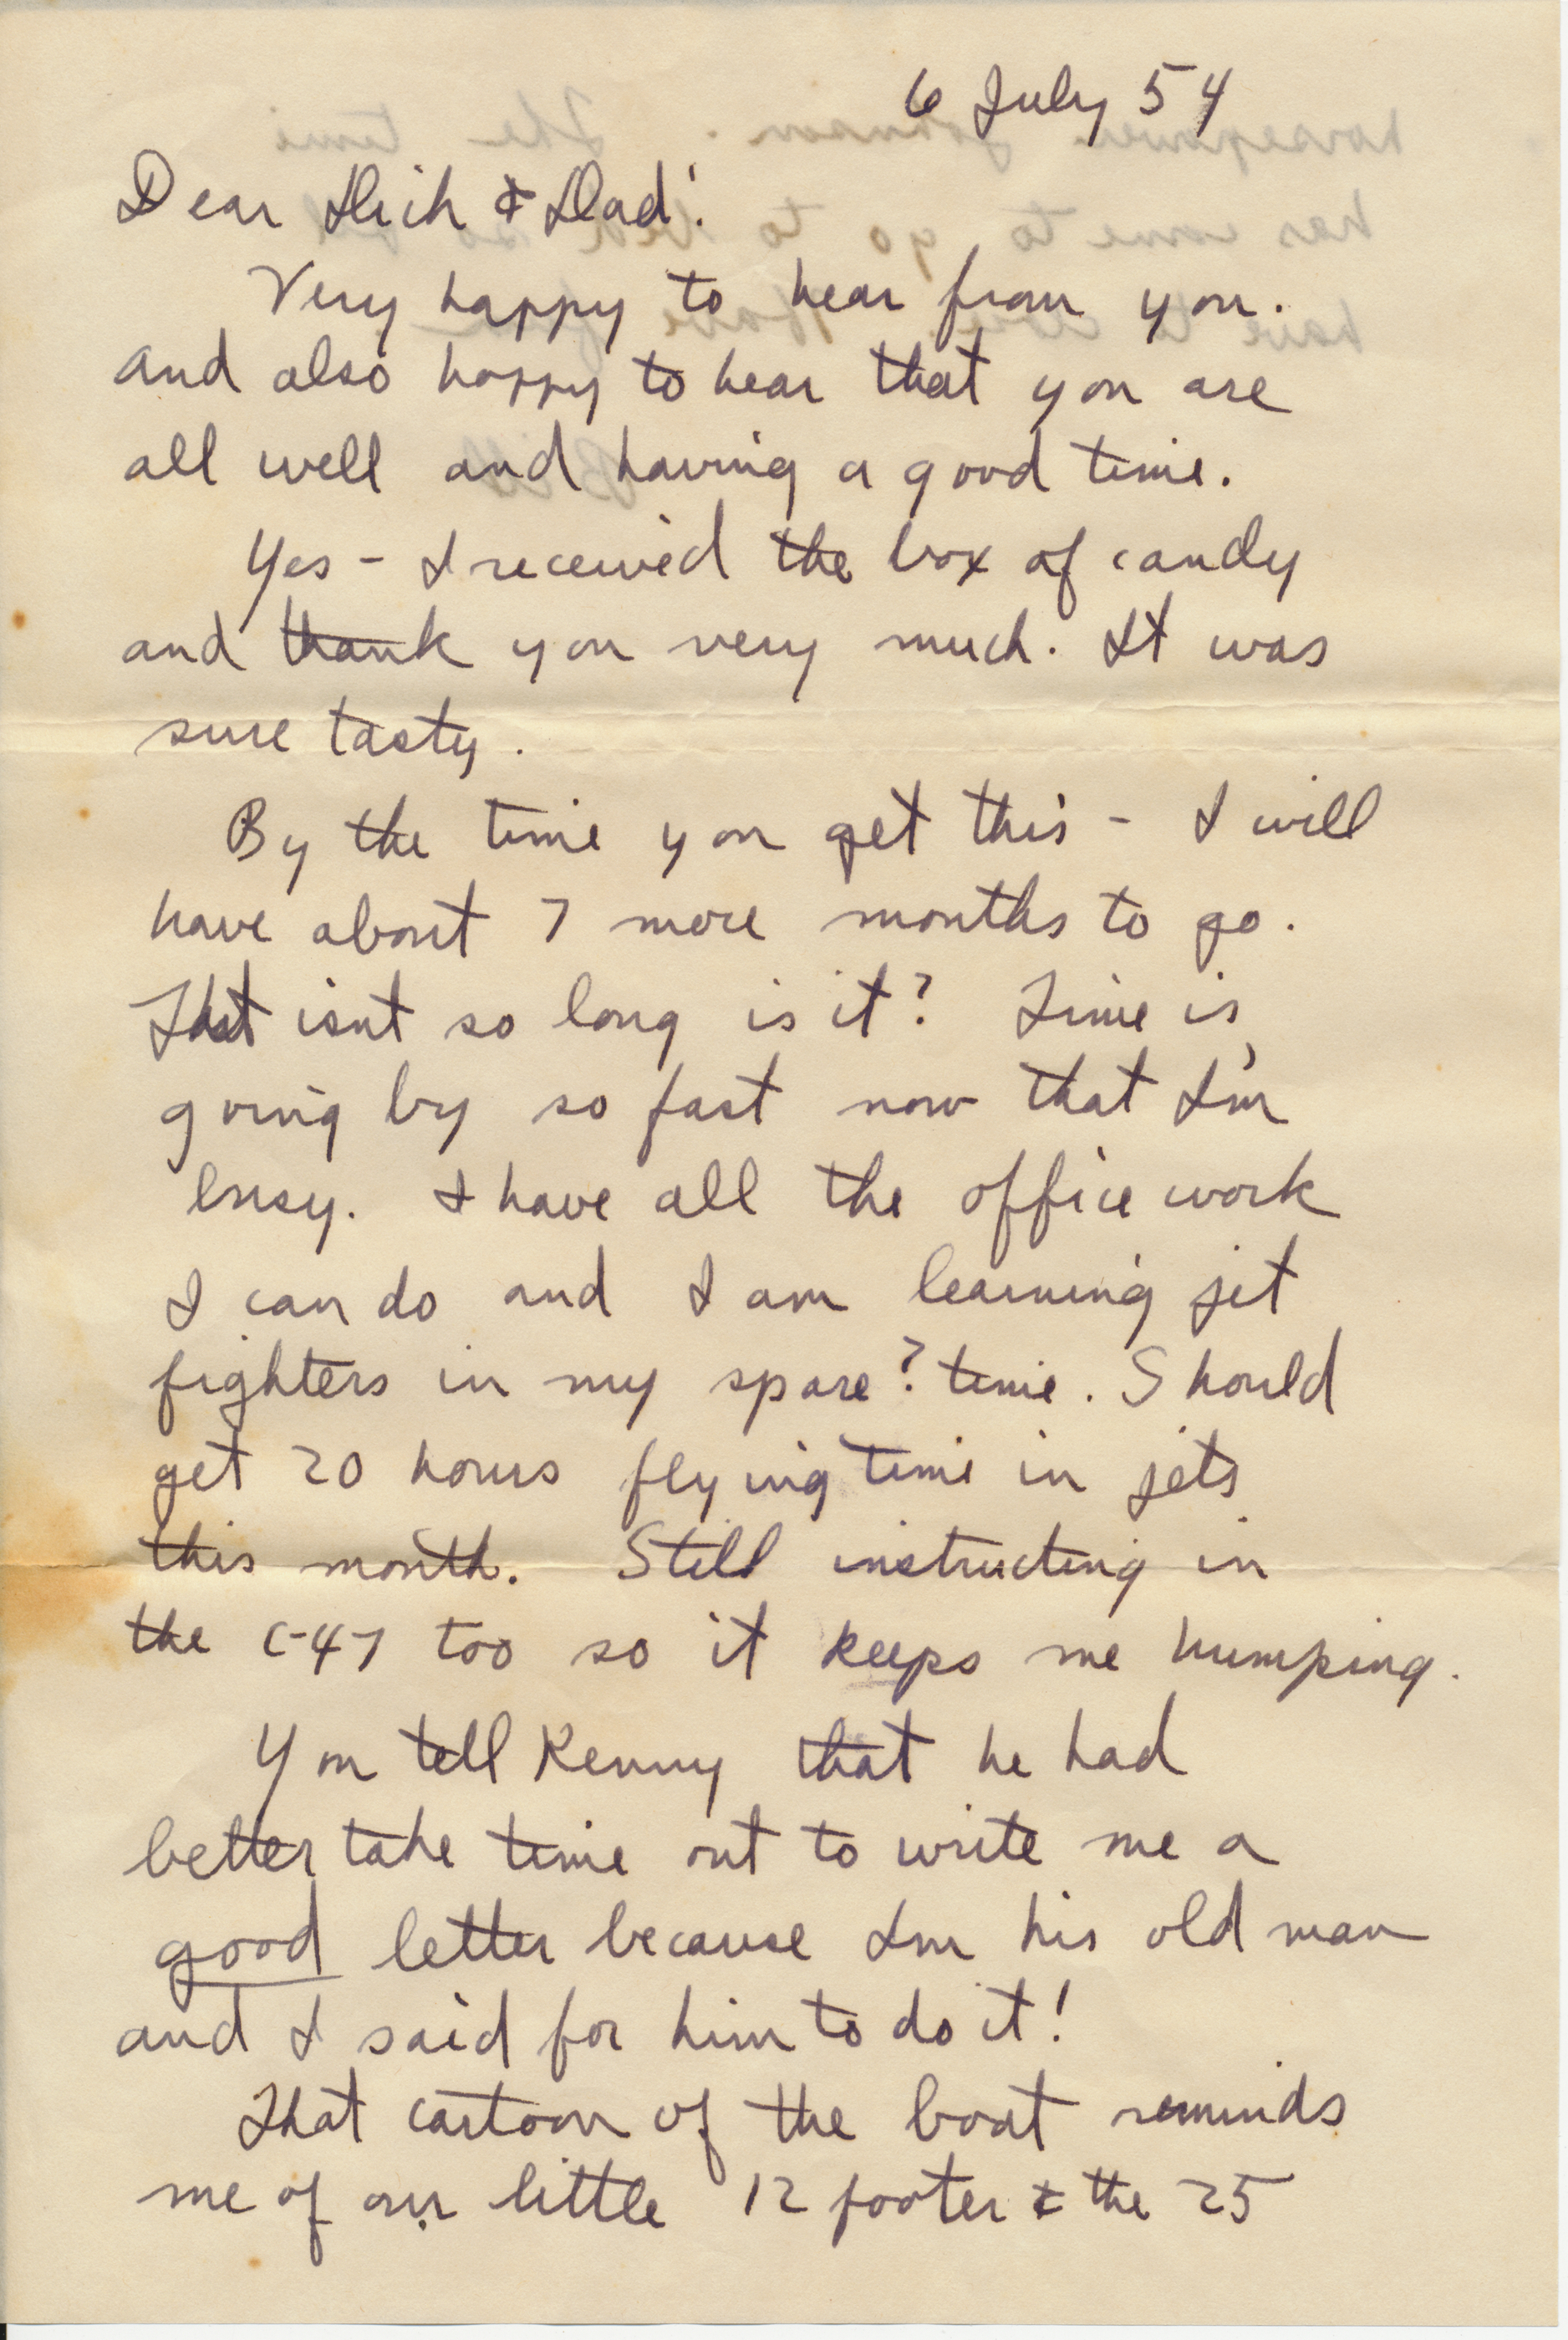 6 July 54
Dear Dich & Dad:
Very happy to hear from you.
and also happy to hear that you are
all well and having a good time.
Yes - I received the box of candy
and thank you very much. It was
sure tasty.
By the time you get this - I will
have about 7 more months to go.
That isnt so long is it? Time is
going by so fast now that I'm
busy. I have all the office work
I can do and I am learning jet
fighters in my spare? time. Should
get 20 hours flying time in jets
this month. Still instructing in
the C-47 too so it keeps me humping.
You tell Kenny that he had
better take time out to write me a
good letter because Im his old man
and I said for him to do it!
That cartoon of the boat reminds
me of our little 12 footer & the 25